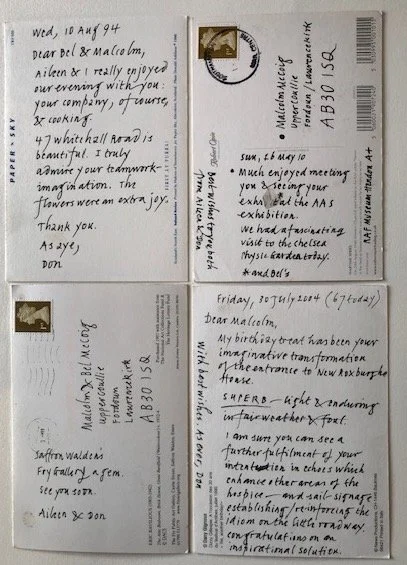 Wed, 10 Aug 94
Dear Bel & Malcolm,
Aileen & I really enjoyed
our evening with you:
your company, of course,
& cooking.
47 Whitehall Road is
beautiful. I truly
admire your teamwork-
imagination. The
flowers were an extra joy.
Thank you.
As aye,
Don
PAPER SKY
Malcolm McCoig
Upper Coullie
Fordoun / Laurencekirk
AB30 1SQ
Sun, 16 May 10
Much enjoyed meeting
you & seeing your
exhib at the AAS
exhibition.
We had a fascinating
visit to the Chelsea
Physic Garden today.
* and Bel's
Best wishes to you both
from Aileen & Don
RAF Museum Hendon A+
Malcolm & Bel McCoig
Upper Coullie
Fordoun
Laurencekirk
AB30 1SQ
Saffron Walden's
Fry Gallery a gem.
See you soon.
Aileen & Don
Friday, 30 July 2004 (67 today)
Dear Malcolm,
My birthday treat has been your
imaginative transformation
of the entrance to New Roxburghe
House.
SUPERB - light & enduring
in fair weather & foul.
I am sure you can see a
further fulfilment of your
intention in echoes which
enhance other areas of the
hospice - and sail signage
establishing / reinforcing the
idiom on the little roadway.
Congratulations on an
inspirational solution.
With best wishes. As ever, Don